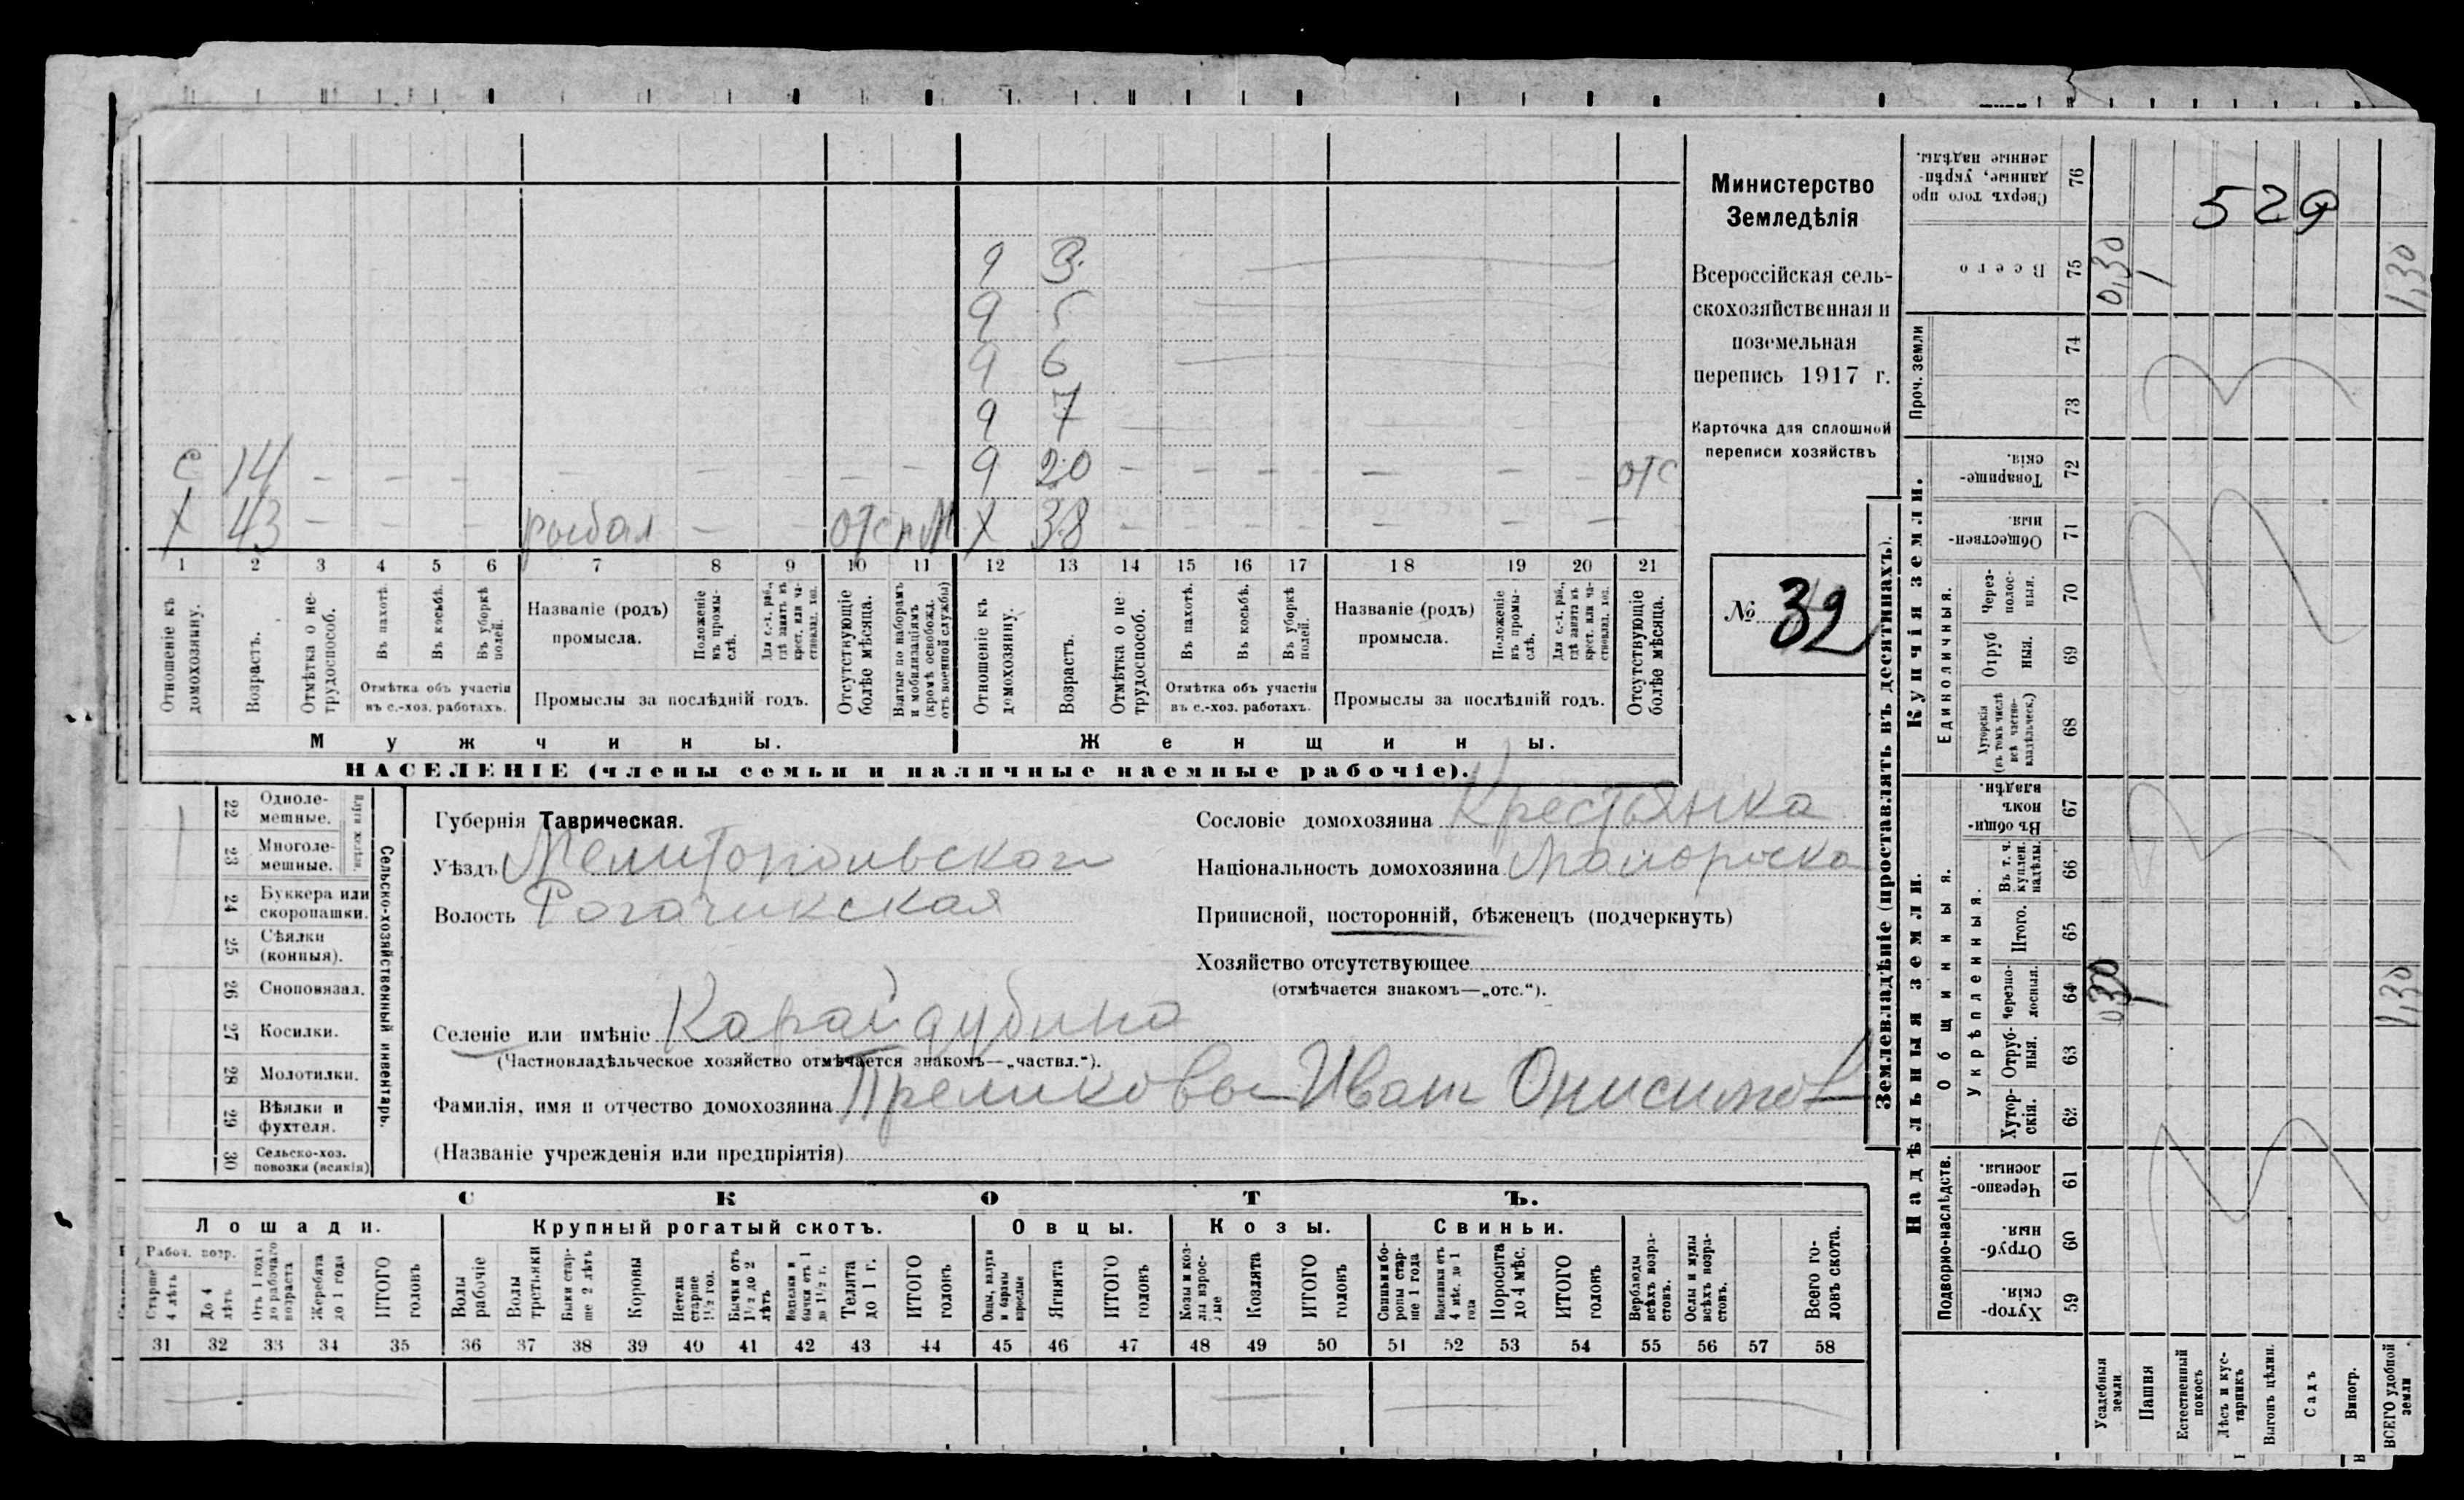 529
Министерство
Земледѣлія
Всероссійская сель-
скохозяйственная и
поземельная
перепись 1917 г.
Карточка для сплошной
переписи хозяйствъ
№ 32
9 3
9 5
9 6
9 7
с 14 – – – – – – – – – 9 20 – – – – – – – отс
х 43 – – рыбал – отс х 38 – – – – – – –
1 2 3 4 5 6 7 8 9 10 11 12 13 14 15 16 17 18 19 20 21
Отношеніе къ домохозяину.
Возрастъ.
Отмѣтка о не-трудоспособ.
Въ пахотѣ.
Въ косьбѣ.
Въ уборкѣ полей.
Отмѣтка объ участіи въ с.-хоз. работахъ.
Названіе (родъ) промысла.
Положеніе въ промы-слѣ.
Для с.-х. раб., гдѣ занятъ въ крест. или ча-стновлад. хоз.
Промыслы за послѣдній годъ.
Отсутствующіе болѣе мѣсяца.
Взятые по наборамъ и мобилизаціямъ (кромѣ освобожд. отъ военной службы)
Отношеніе къ домохозяину.
Возрастъ.
Отмѣтка о не трудоспособ.
Въ пахотѣ.
Въ косьбѣ.
Въ уборкѣ полей.
Отмѣтка объ участіи въ с.-хоз. работахъ.
Названіе (родъ) промысла.
Положеніе въ промы-слѣ.
Для с.-х. раб., гдѣ занята въ крест. или ча-стновлад. хоз.
Промыслы за послѣдній годъ.
Отсутствующіе болѣе мѣсяца.
Мужчины. Женщины.
НАСЕЛЕНІЕ (члены семьи и наличные наемные рабочіе).
Сельско-хозяйственный инвентарь.
22 Одноле-мешные.
23 Многоле-мешные.
24 Буккера или скоропашки.
25 Сѣялки (конныя).
26 Сноповязал.
27 Косилки.
28 Молотилки.
29 Вѣялки и фухтеля.
30 Сельско-хоз. повозки (всякія)
Губернія Таврическая.
Уѣздъ Мелитопольской
Волость Рогачикская
Селеніе или имѣніе Карайдубина
(Частновладѣльческое хозяйство отмѣчается знакомъ—„частвл.“).
Фамилія, имя и отчество домохозяина Иван Онисимов
(Названіе учрежденія или предпріятія)
Сословіе домохозяина Крестьянка
Національность домохозяина Малороска
Приписной, посторонній, бѣженецъ (подчеркнуть)
Хозяйство отсутствующее
(отмѣчается знакомъ—„отс.“).
СКОТЪ.
Лошади. Крупный рогатый скотъ. Овцы. Козы. Свиньи.
Рабоч. возр.
Старше 4 лѣтъ
До 4 лѣтъ
Отъ 1 года до рабочаго возраста
Жеребята до 1 года
ИТОГО головъ
Волы рабочіе
Волы третьяки
Быки стар-ше 2 лѣтъ
Коровы
Нетели старше 1½ год.
Бычки отъ 1½ до 2 лѣтъ
Телята до 1 г.
ИТОГО головъ
Овцы, валухи и бараны взрослые
Ягнята
ИТОГО головъ
Козы и коз-лы взрос-лые
Козлята
ИТОГО головъ
Свиньи и бо-ровы стар-ше 1 года
Подсвинки отъ 4 мѣс. до 1 года
Поросята до 4 мѣс.
ИТОГО головъ
Верблюды всѣхъ возра-стовъ.
Ослы и мулы всѣхъ возра-стовъ.
Всего го-ловъ скота.
31 32 33 34 35 36 37 38 39 40 41 42 43 44 45 46 47 48 49 50 51 52 53 54 55 56 57 58
Землевладѣніе (проставлять въ десятинахъ).
Купчія земли.
Надѣльныя земли.
Сверхъ того про данные, укрѣп-ленные надѣлы. 76
Всего 75 0,30 1 1,30
Проч. земли 74 73
Товарище-скія. 72
Обществен-ныя. 71
Единоличныя.
Через-полос-ныя. 70
Отруб ныя. 69
Хуторскія (въ томъ числѣ всѣ частно-владѣльческ.) 68
Общинныя.
Въ общи-номъ владѣн. 67
Укрѣпленныя.
Въ т. ч. куплен. надѣлы. 66
Итого. 65
Черезпо-лосныя. 64 0,30 1 1,30
Отруб-ныя. 63
Хутор-скія. 62
Подворно-наслѣдств.
Черезпо-лосныя. 61
Отруб-ныя. 60
Хутор-скія. 59
Усадебныя земли.
Пашня
Естественный покосъ
Лѣсъ и кус-тарникъ
Выгонъ цѣлин.
Садъ
Виногр.
ВСЕГО удобной земли